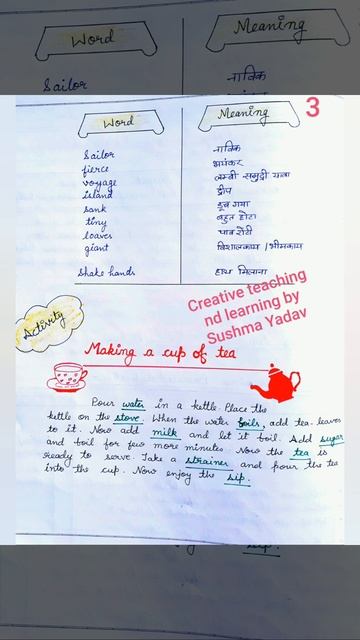 Word Meaning
Sailor नाविक
Word Meaning 3
Sailor नाविक
fierce भयंकर
voyage लम्बी समुद्री यात्रा
island द्वीप
sank डूब गया
tiny बहुत छोटा
loaves पाव रोटी
giant विशालकाय / भीमकाय
shake hands हाथ मिलाना
Creative teaching
nd learning by
Sushma Yadav
Activity
Making a cup of tea
Pour water in a kettle. Place the
kettle on the stove. When the water boils, add tea-leaves
to it. Now add milk and let it boil. Add sugar
and boil for few more minutes. Now the tea is
ready to serve. Take a strainer and pour the tea
into the cup. Now enjoy the sip.
sip.